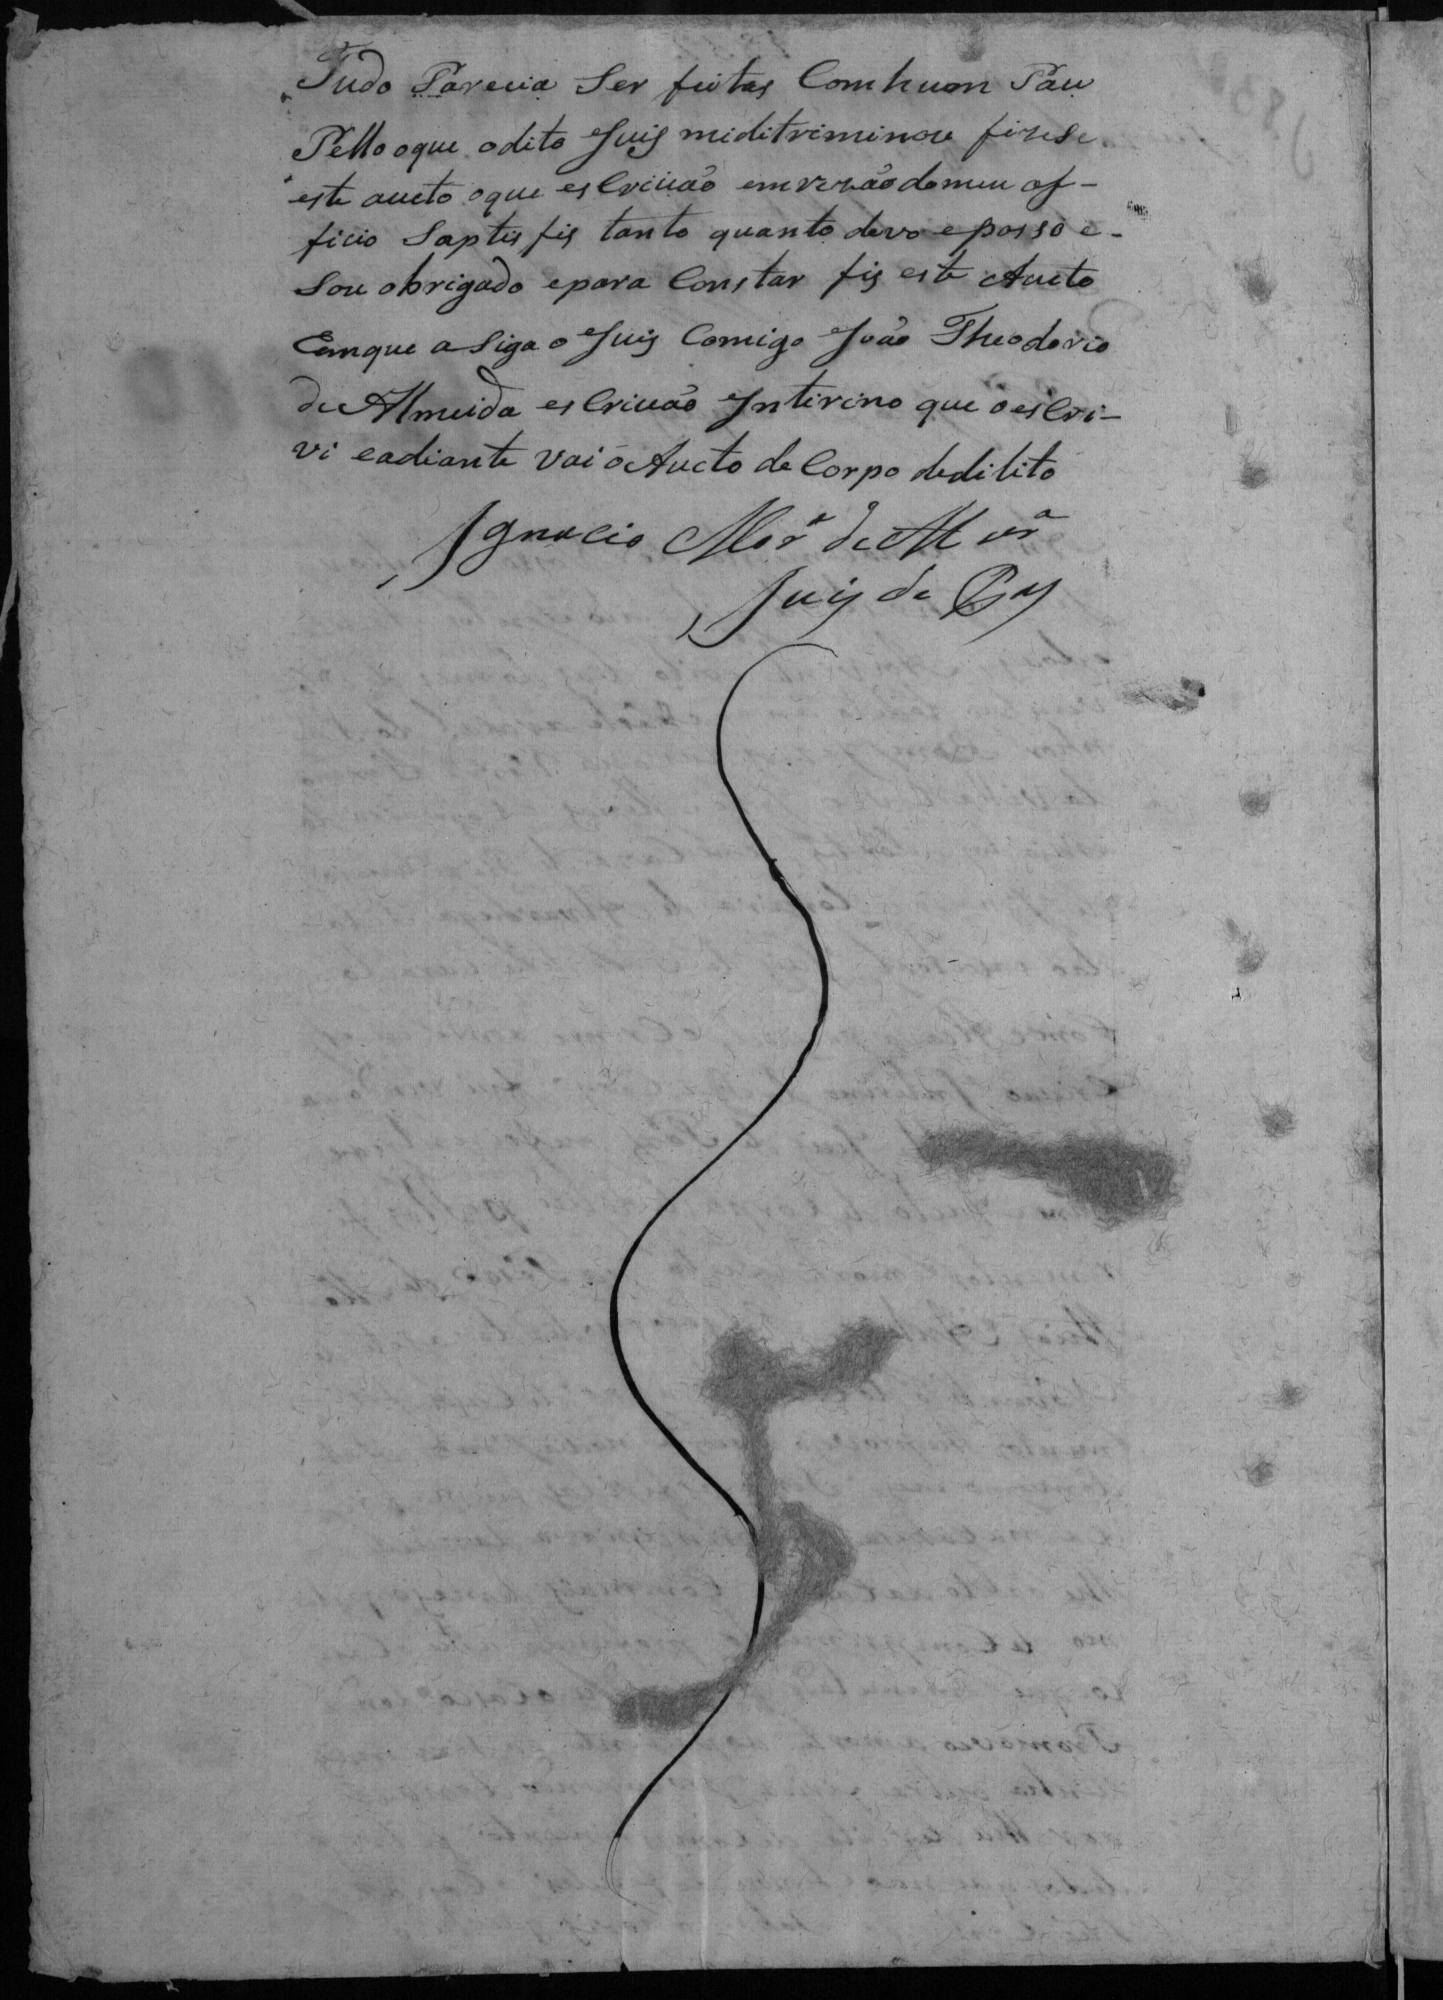 Tudo Parecia Ser feitas Comhum Pau
Pello oque odito Juis miditriminou fizese
este aucto oque escrivão emrezão domeu of-
ficio Saptis fis tanto quanto devo eposso e-
Sou obrigado epara Constar fis este Aucto
Emque asiga o Juis Comigo João Theodorio
de Almeida escrivão Interino que o escri-
vi eadiante vai o Aucto de Corpo dedilito
Ignacio Mor.ª de
Juis de Pas